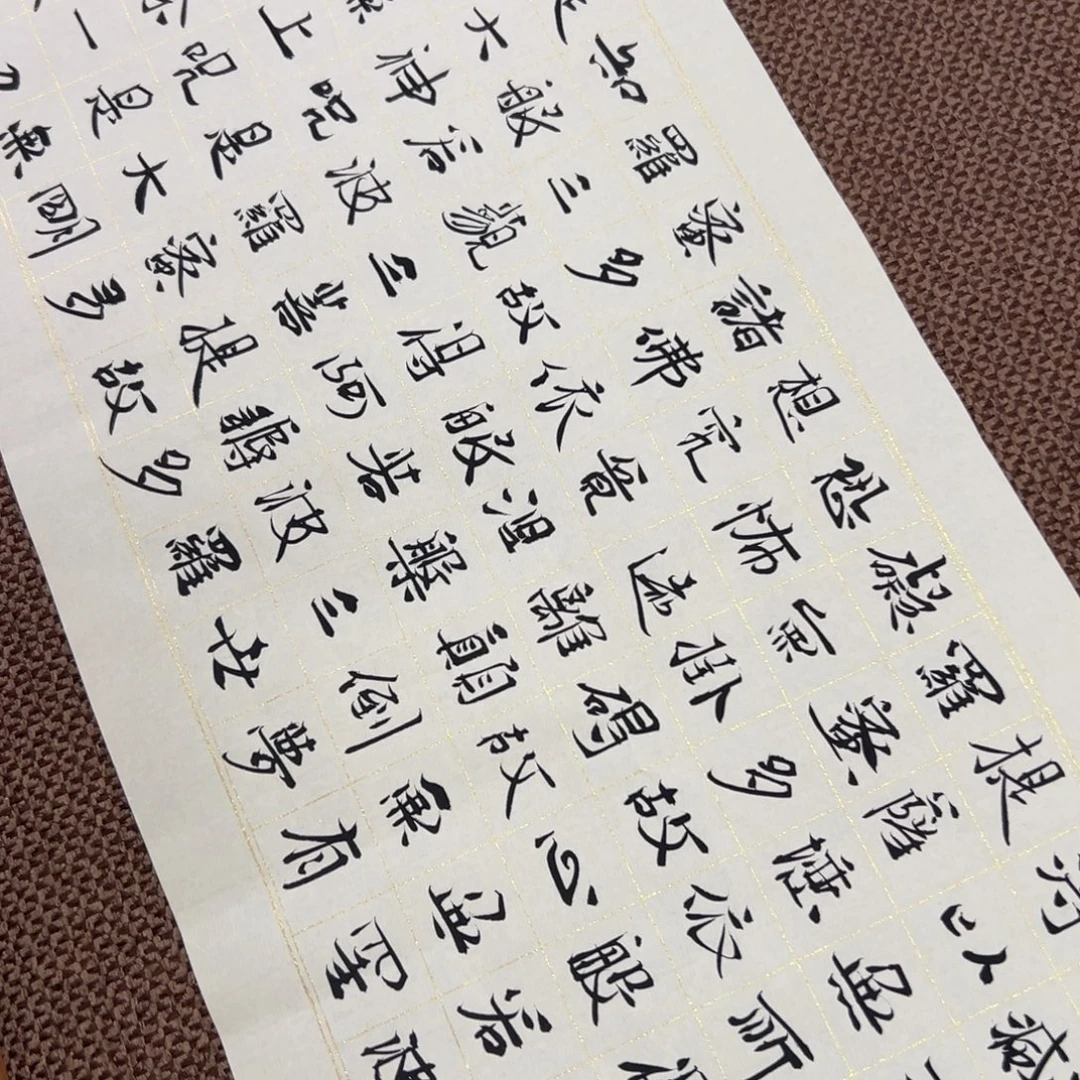 滅
得以無所得
提薩埵依般若波
羅蜜多故心無罣
礙無罣礙故無有
恐怖遠離顛倒夢
想究竟涅槃三世
諸佛依般若波羅
蜜多故得阿耨多
羅三藐三菩提故
知般若波羅蜜多
是大神咒是大明
無上咒是無
一切